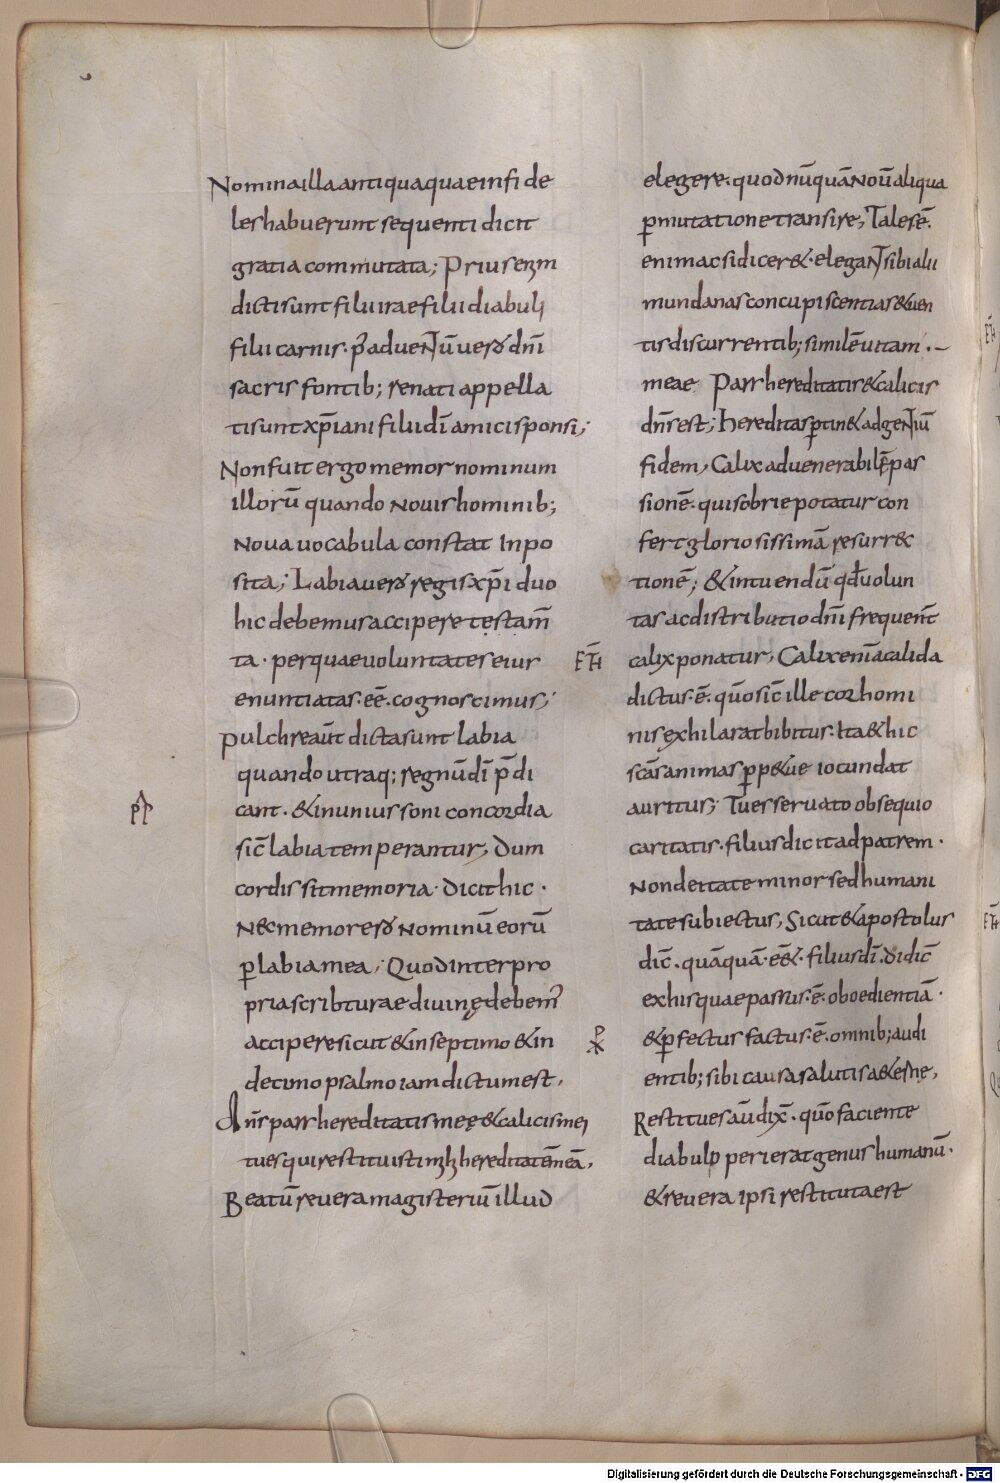 Nomina illa antiqua quae infide
les habuerunt sequenti dicit
gratia commutata; Prius enim
dicti sunt filii irae filii diabuli
filii carnis. p̄ adventū vero dn̄i
sacris fontib; renati appella
ti sunt xp̄iani filii dī amici sponsi;
Non fuit ergo memor nominum
illorū quando novis hominib;
nova vocabula constat inpo
sita; Labia vero regis xp̄i duo
hic debemus accipere testam̄
ta. per quae voluntates eius
enuntiatas. eē. cognoscimus;
Pulchre aūt dicta sunt labia
quando utraq; regnū dī p̄di
cant. & in unius soni concordia
sic̄ labia temperantur, Dum
cordis sit memoria. dicit hic.
Nec memor ero nominū eorū
ꝑ labia mea; Quod inter pro
pria scribturae divinę debem᾽
accipere sicut & in septimo & in
decimo psalmo iam dictum est,
Dn̄s pars hereditatis meę & calicis mei
tu es qui restituisti mihi hereditatē meā.
Beatū revera magisteriū illud
elegere. quod nūquā novū aliqua
ꝑmutatione transire, Tales ē.
enim ac si dicer&. elegant sibi alii
mundanas concupiscentias & uen
tis discurrentib; similē vitam.
meae Pars hereditatis & calicis
dn̄s est; hereditas ꝑtin& ad gentiū
fidem, Calix ad venerabilē pas
sionē. qui sobrie potatur con
fert gloriosissimā resurrec
tionē; & intuendū qđ volun
tas ac distributio dn̄i frequent̄
calix ponatur, Calix enī a calida
dictus. ē. quō sic̄ ille cor homi
nis exhilarat bibitus. Ita & hic
scās animas ꝑp&ue iocundat
auritus; Tu es servato obsequio
caritatis. filius dicit ad patrem.
Non deitate minor sed humani
tate subiectus, Sicut & apostolus
dic̄. quāquā. eē&. filius dī. didic̄
ex his quae passus. ē. oboedientiā.
& ꝑfectus factus. ē. omnib; audi
entib; sibi causa salutis a&erne,
Restitues aū dix̄. quō faciente
diabulo perierat genus humanū.
& revera ipsi restituta est
Digitalisierung gefördert durch die Deutsche Forschungsgemeinschaft - DFG